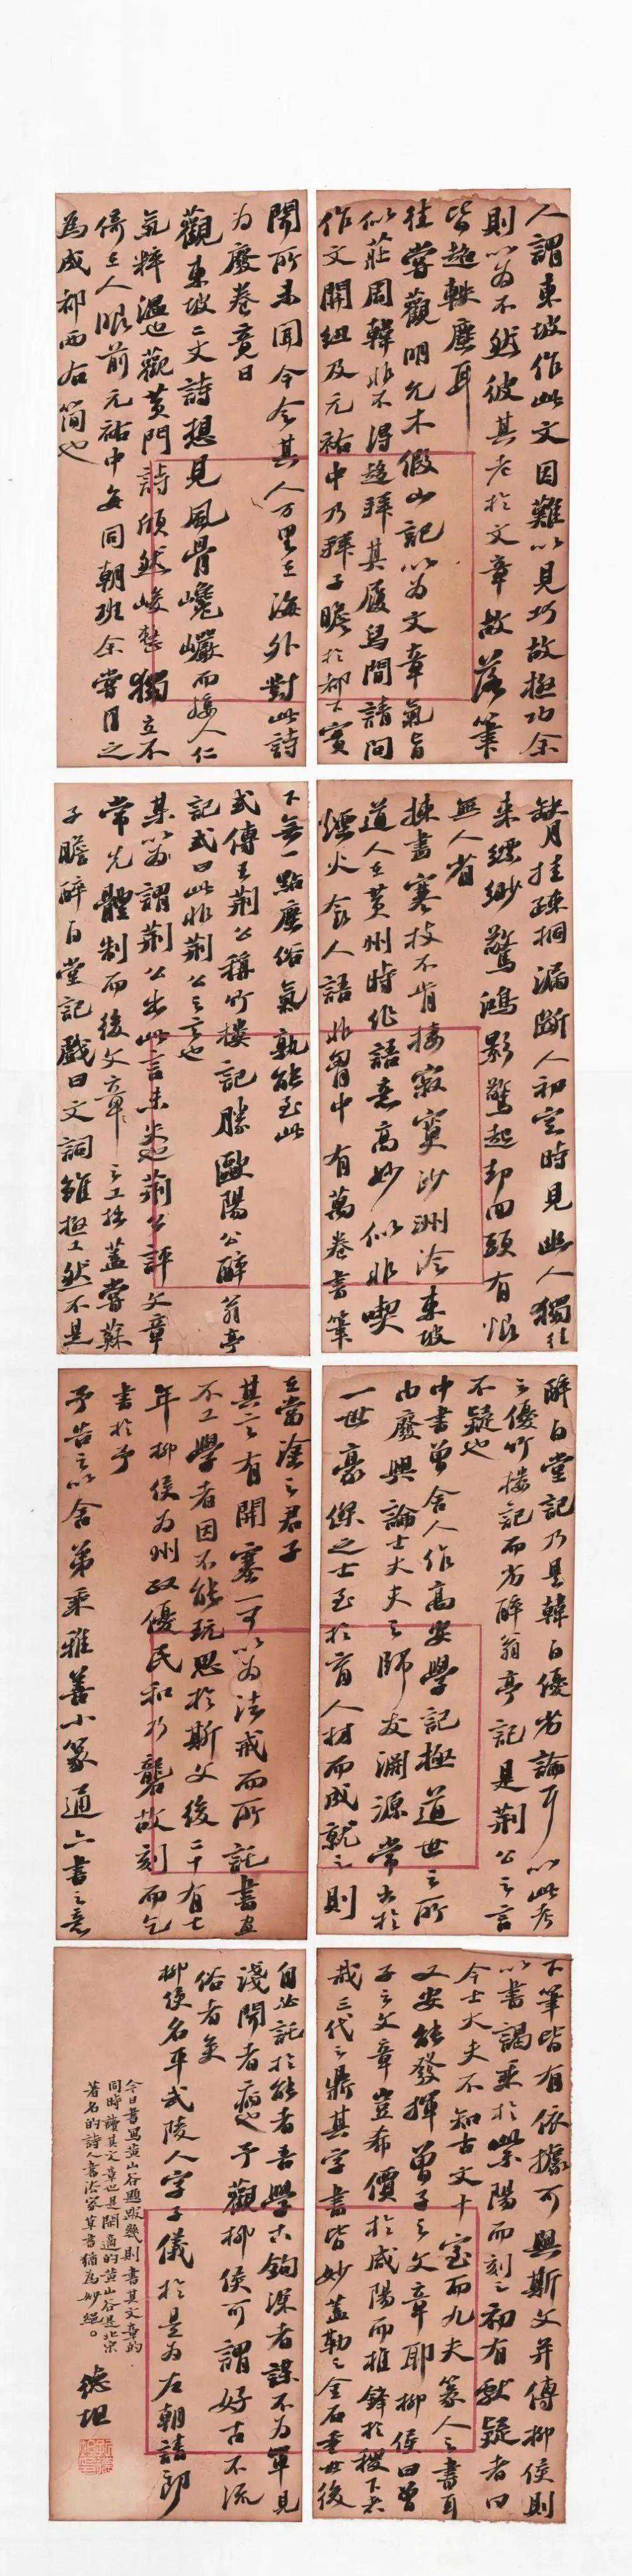 人謂東坡作此文因難以見巧故極工余
則以為不然彼其老於文章故落筆
皆超軼塵耳
往嘗觀明允木假山記以為文章氣旨
似莊周韓非不得趍拜其履舄間請問
作文關紐及元祐中乃拜子瞻於都下實
聞所未聞今令其人万里在海外對此詩
為廢卷竟日
觀東坡二丈詩想見風骨巉巖而接人仁
氣粹溫也觀黃門詩頎然峻整獨立不
倚在人眼前元祐中每同朝班余嘗目之
為成都兩石筍也
缺月挂疎桐漏斷人初定時見幽人獨往
來縹緲驚鴻影驚起卻回頭有恨
無人省
揀盡寒枝不肯棲寂寞沙洲冷東坡
道人在黃州時作語意高妙似非喫
煙火食人語非胷中有萬卷書筆
下無一點塵俗氣孰能至此
或傳王荊公稱竹樓記勝歐陽公醉翁亭
記或曰此非荊公之言也
某以為謂荊公出此言未失也荊公評文章
常先體制而後文章之工拙蓋嘗蘇
子瞻醉白堂記戲曰文詞雖極工然不是
醉白堂記乃是韓白優劣論耳以此考
之優竹樓記而劣醉翁亭記是荊公之言
不疑也
中書曾舍人作高安學記極道世之所
由廢興論士大夫之師友淵源常出於
一世豪傑之士至於育人材而成就之則
在當塗之君子
其言有開塞一可以為法戒而所託書畫
不工學者因不能玩思於斯文後二十有七
年柳侯為州政優民和乃礱故刻而乞
書於予
予告之以舍弟乘雅善小篆通六書之意
下筆皆有依據可與斯文并傳柳侯則
以書謁乘於紫陽而刻之初有獻疑者曰
今士大夫不知古文十室而九夫篆人之書耳
又安能發揮曾子之文章耶柳侯曰曾
子之文章豈希價於咸陽而椎鋒於稷下者
哉三代之鼎其字書皆妙蓋勒之金石垂世後
自必託於能者吾學古鉤深者謀不為單見
淺聞者病也予觀柳侯可謂好古不流
俗者矣
柳侯名平武陵人字子儀於是為左朝請郎
今日書寫黃山谷題跋幾則書其文章的
同時讀其文章也是閑適的黃山谷是北宋
著名的詩人書法家草書猶為妙絕。
德坦